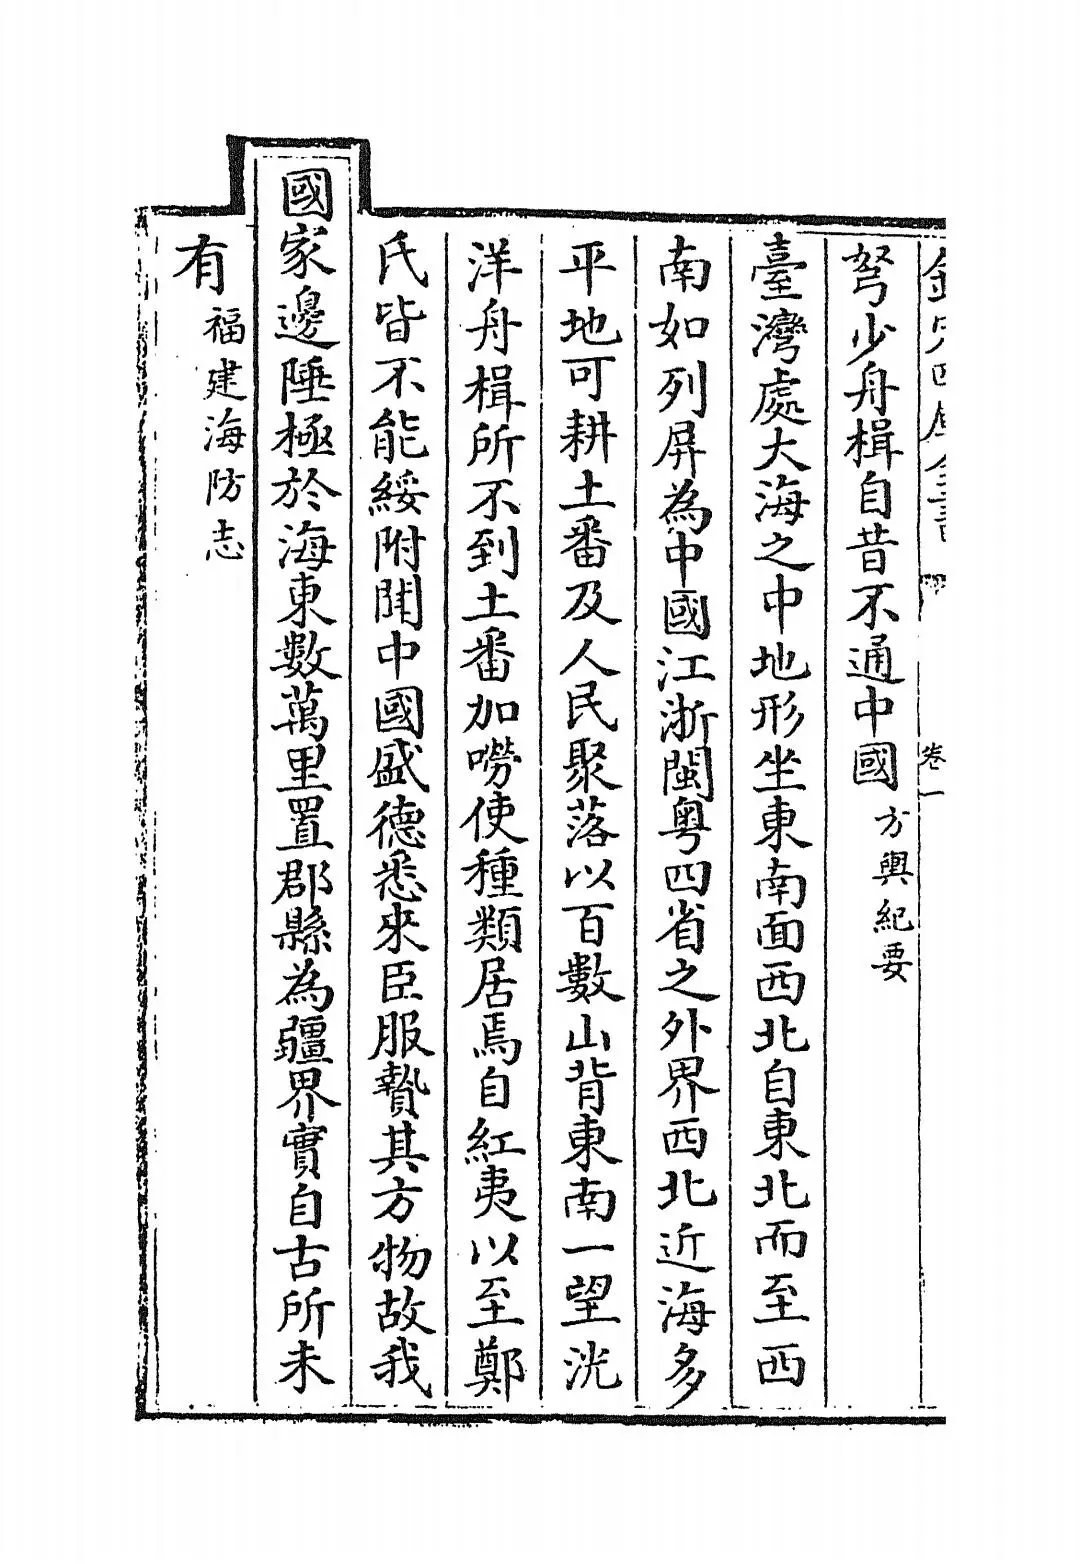 欽定四庫全書
卷一
弩少舟楫自昔不通中國方輿紀要
臺灣處大海之中地形坐東南面西北自東北而至西
南如列屏為中國江浙閩粵四省之外界西北近海多
平地可耕土番及人民聚落以百數山背東南一望洸
洋舟楫所不到土番加嘮使種類居焉自紅夷以至鄭
氏皆不能綏附聞中國盛德悉來臣服贄其方物故我
國家邊陲極於海東數萬里置郡縣為疆界實自古所未
有福建海防志